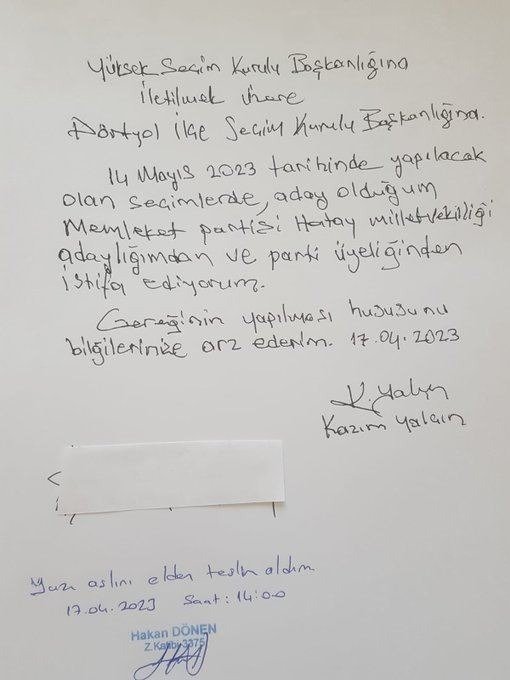 Yüksek Seçim Kurulu Başkanlığına
İletilmek üzere
Dörtyol İlçe Seçim Kurulu Başkanlığına.
14 Mayıs 2023 tarihinde yapılacak
olan seçimlerde, aday olduğum
Memleket partisi Hatay milletvekilliği
adaylığımdan ve parti üyeliğinden
istifa ediyorum.
Gereğinin yapılması hususunu
bilgilerinize arz ederim. 17.04.2023
K. Yalçın
Kazım Yalçın
Yazı aslını elden teslim aldım
17.04.2023 Saat: 14:00
Hakan DÖNEN
Z.Katibi 3375